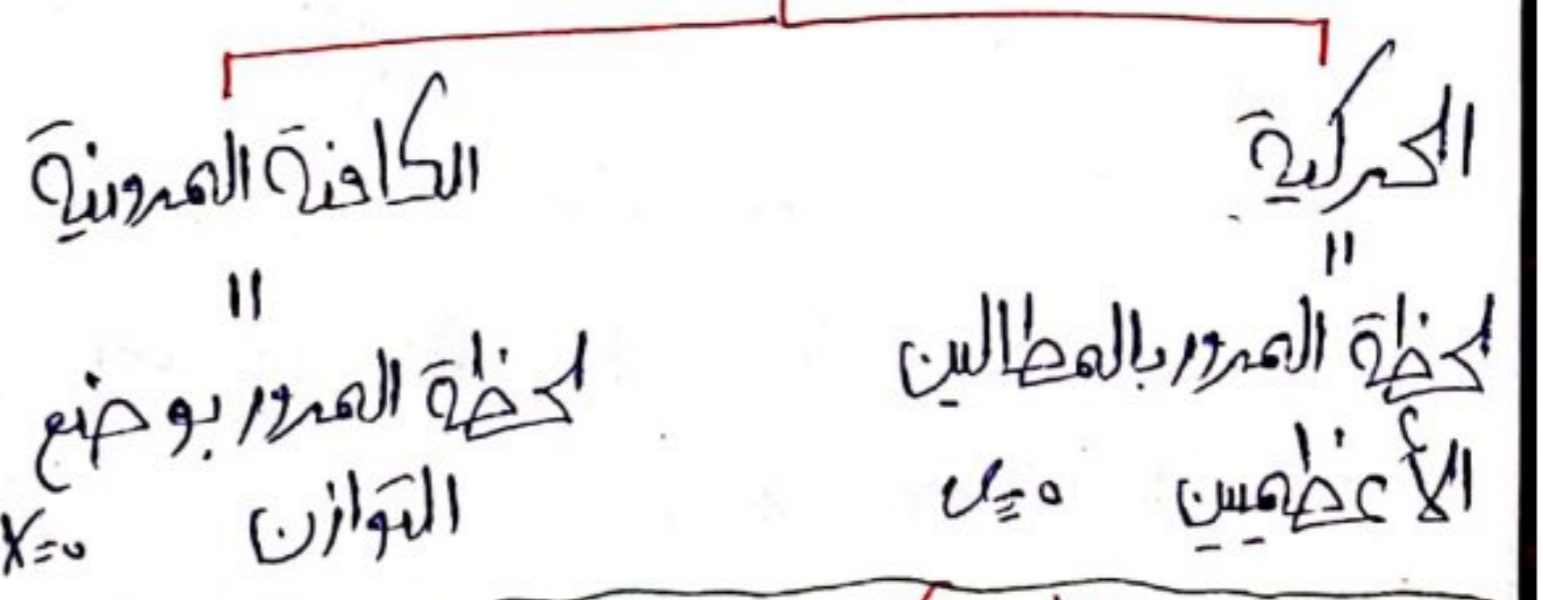 الحركية
"
لحظة المرور بالمطالين
الأعظميين v=0
الكامنة المرونية
"
لحظة المرور بوضع
التوازن x=0